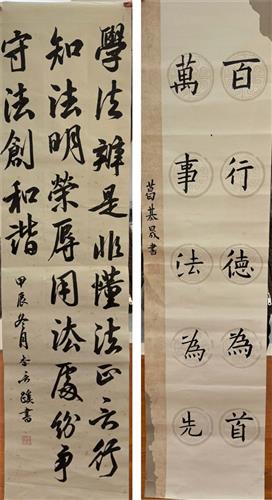 學法辨是非懂法正言行
知法明榮辱用法處紛争
守法創和諧
甲辰冬月 蹊書
百行德為首
萬事法為先
基晟書